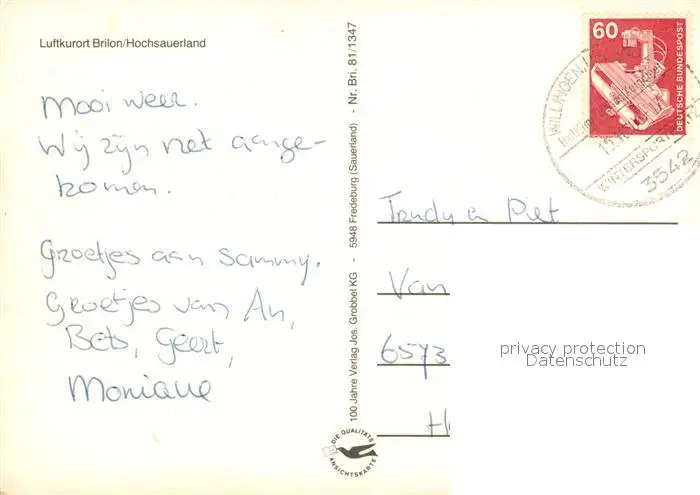 Luftkurort Brilon/Hochsauerland
Mooi weer.
Wij zijn net aange-
komen.
Groetjes aan Sammy.
Groetjes van An,
Bets, Geert,
Monique
100 Jahre Verlag Jos. Grobbel KG - 5948 Fredeburg (Sauerland) - Nr. Bri. 81/1347
DIE QUALITÄTS
ANSICHTSKARTE
60
DEUTSCHE BUNDESPOST
WILLINGEN
WINTERSPORT
3542
Trudy en Piet
Van
6573
privacy protection
Datenschutz